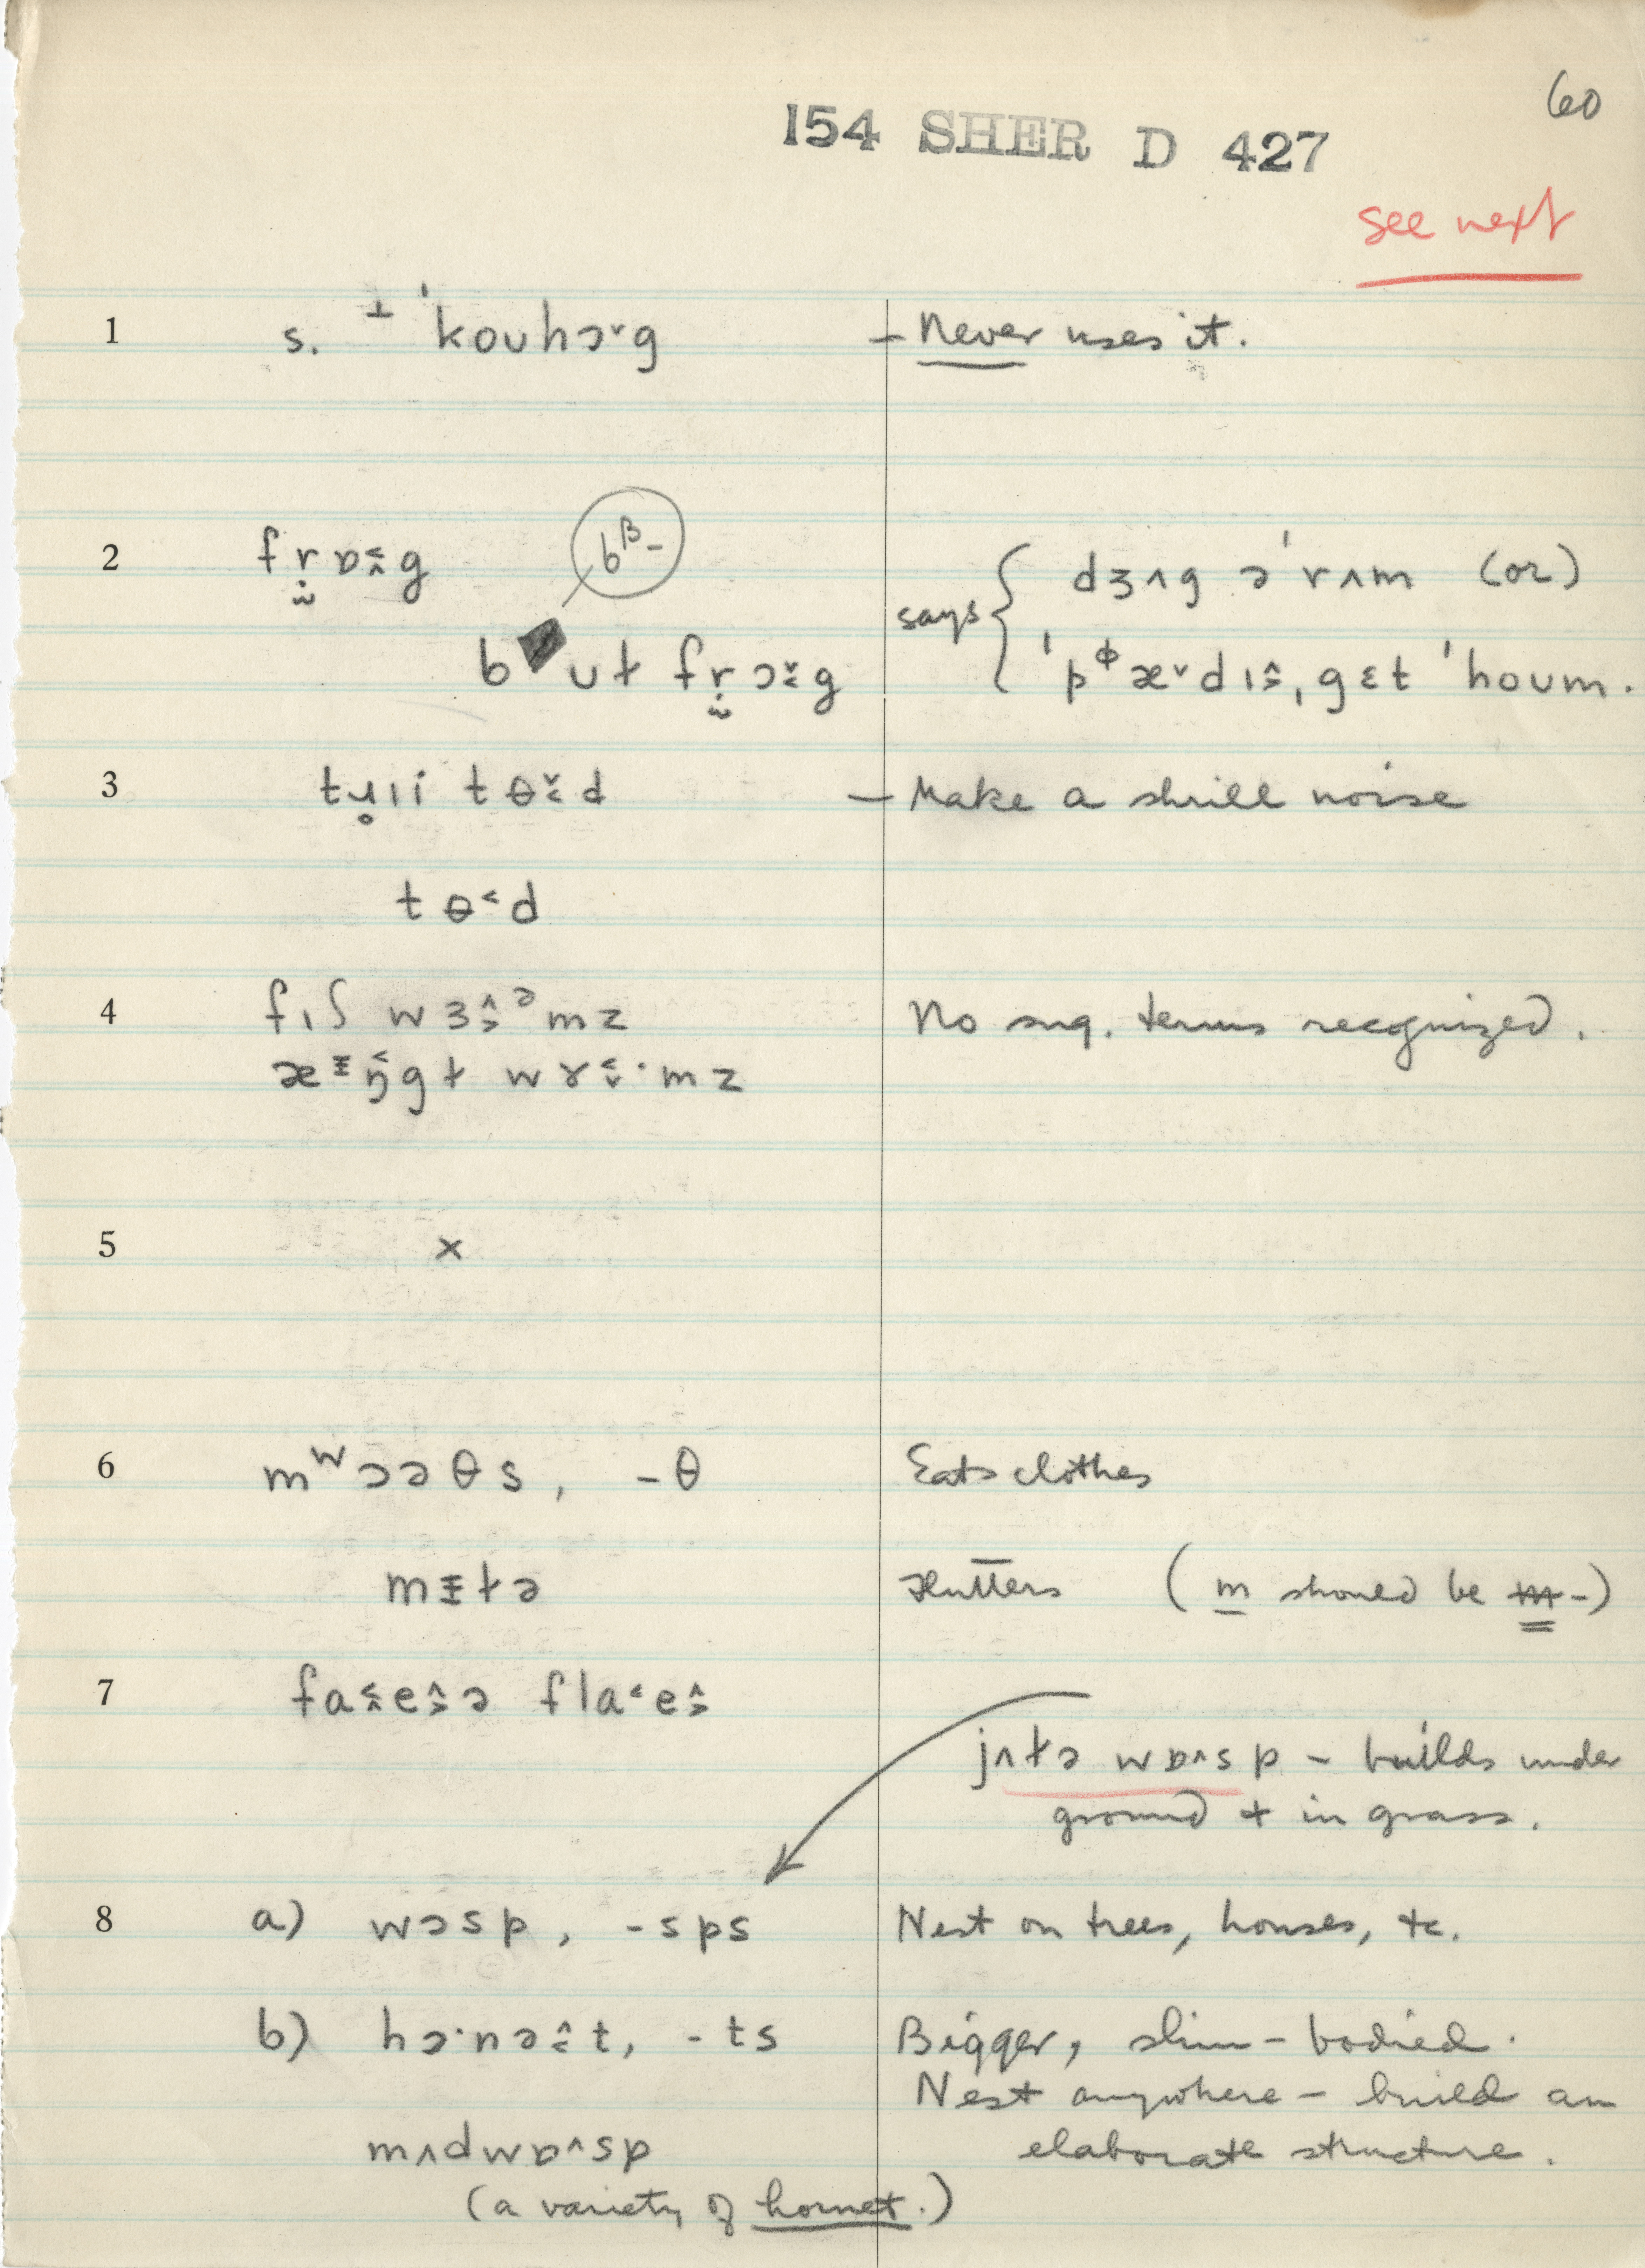 60
154 SHER D 427
see next
1 s. ⊥ ˈkoʊhɔ˞ɡ – Never uses it.
2 frɒɡ bᵝ-
says { dʒʌɡ əˈrʌm (or)
bʊɫ frɔɡ ˈpᶲæ˅dɪs, ɡɛt ˈhoʊm.
3 tɹɪi tɵd – Make a shrill noise
tɵ˂d
4 fɪʃ wɜᵊmz No sug. terms recognized.
æŋɡɫ wɤ·mz
5 x
6 mʷɔəθs, -θ Eats clothes
mɪɫə Flutters (m should be m-)
7 faeə fla˂e
jʌɫə wɒ^sp – builds under
ground + in grass.
8 a) wɔsp, -sps Nest on trees, houses, &c.
b) hɔ·nət, -ts Bigger, slim-bodied.
Nest anywhere – build an
mʌdwɒ^sp elaborate structure.
(a variety of hornet.)